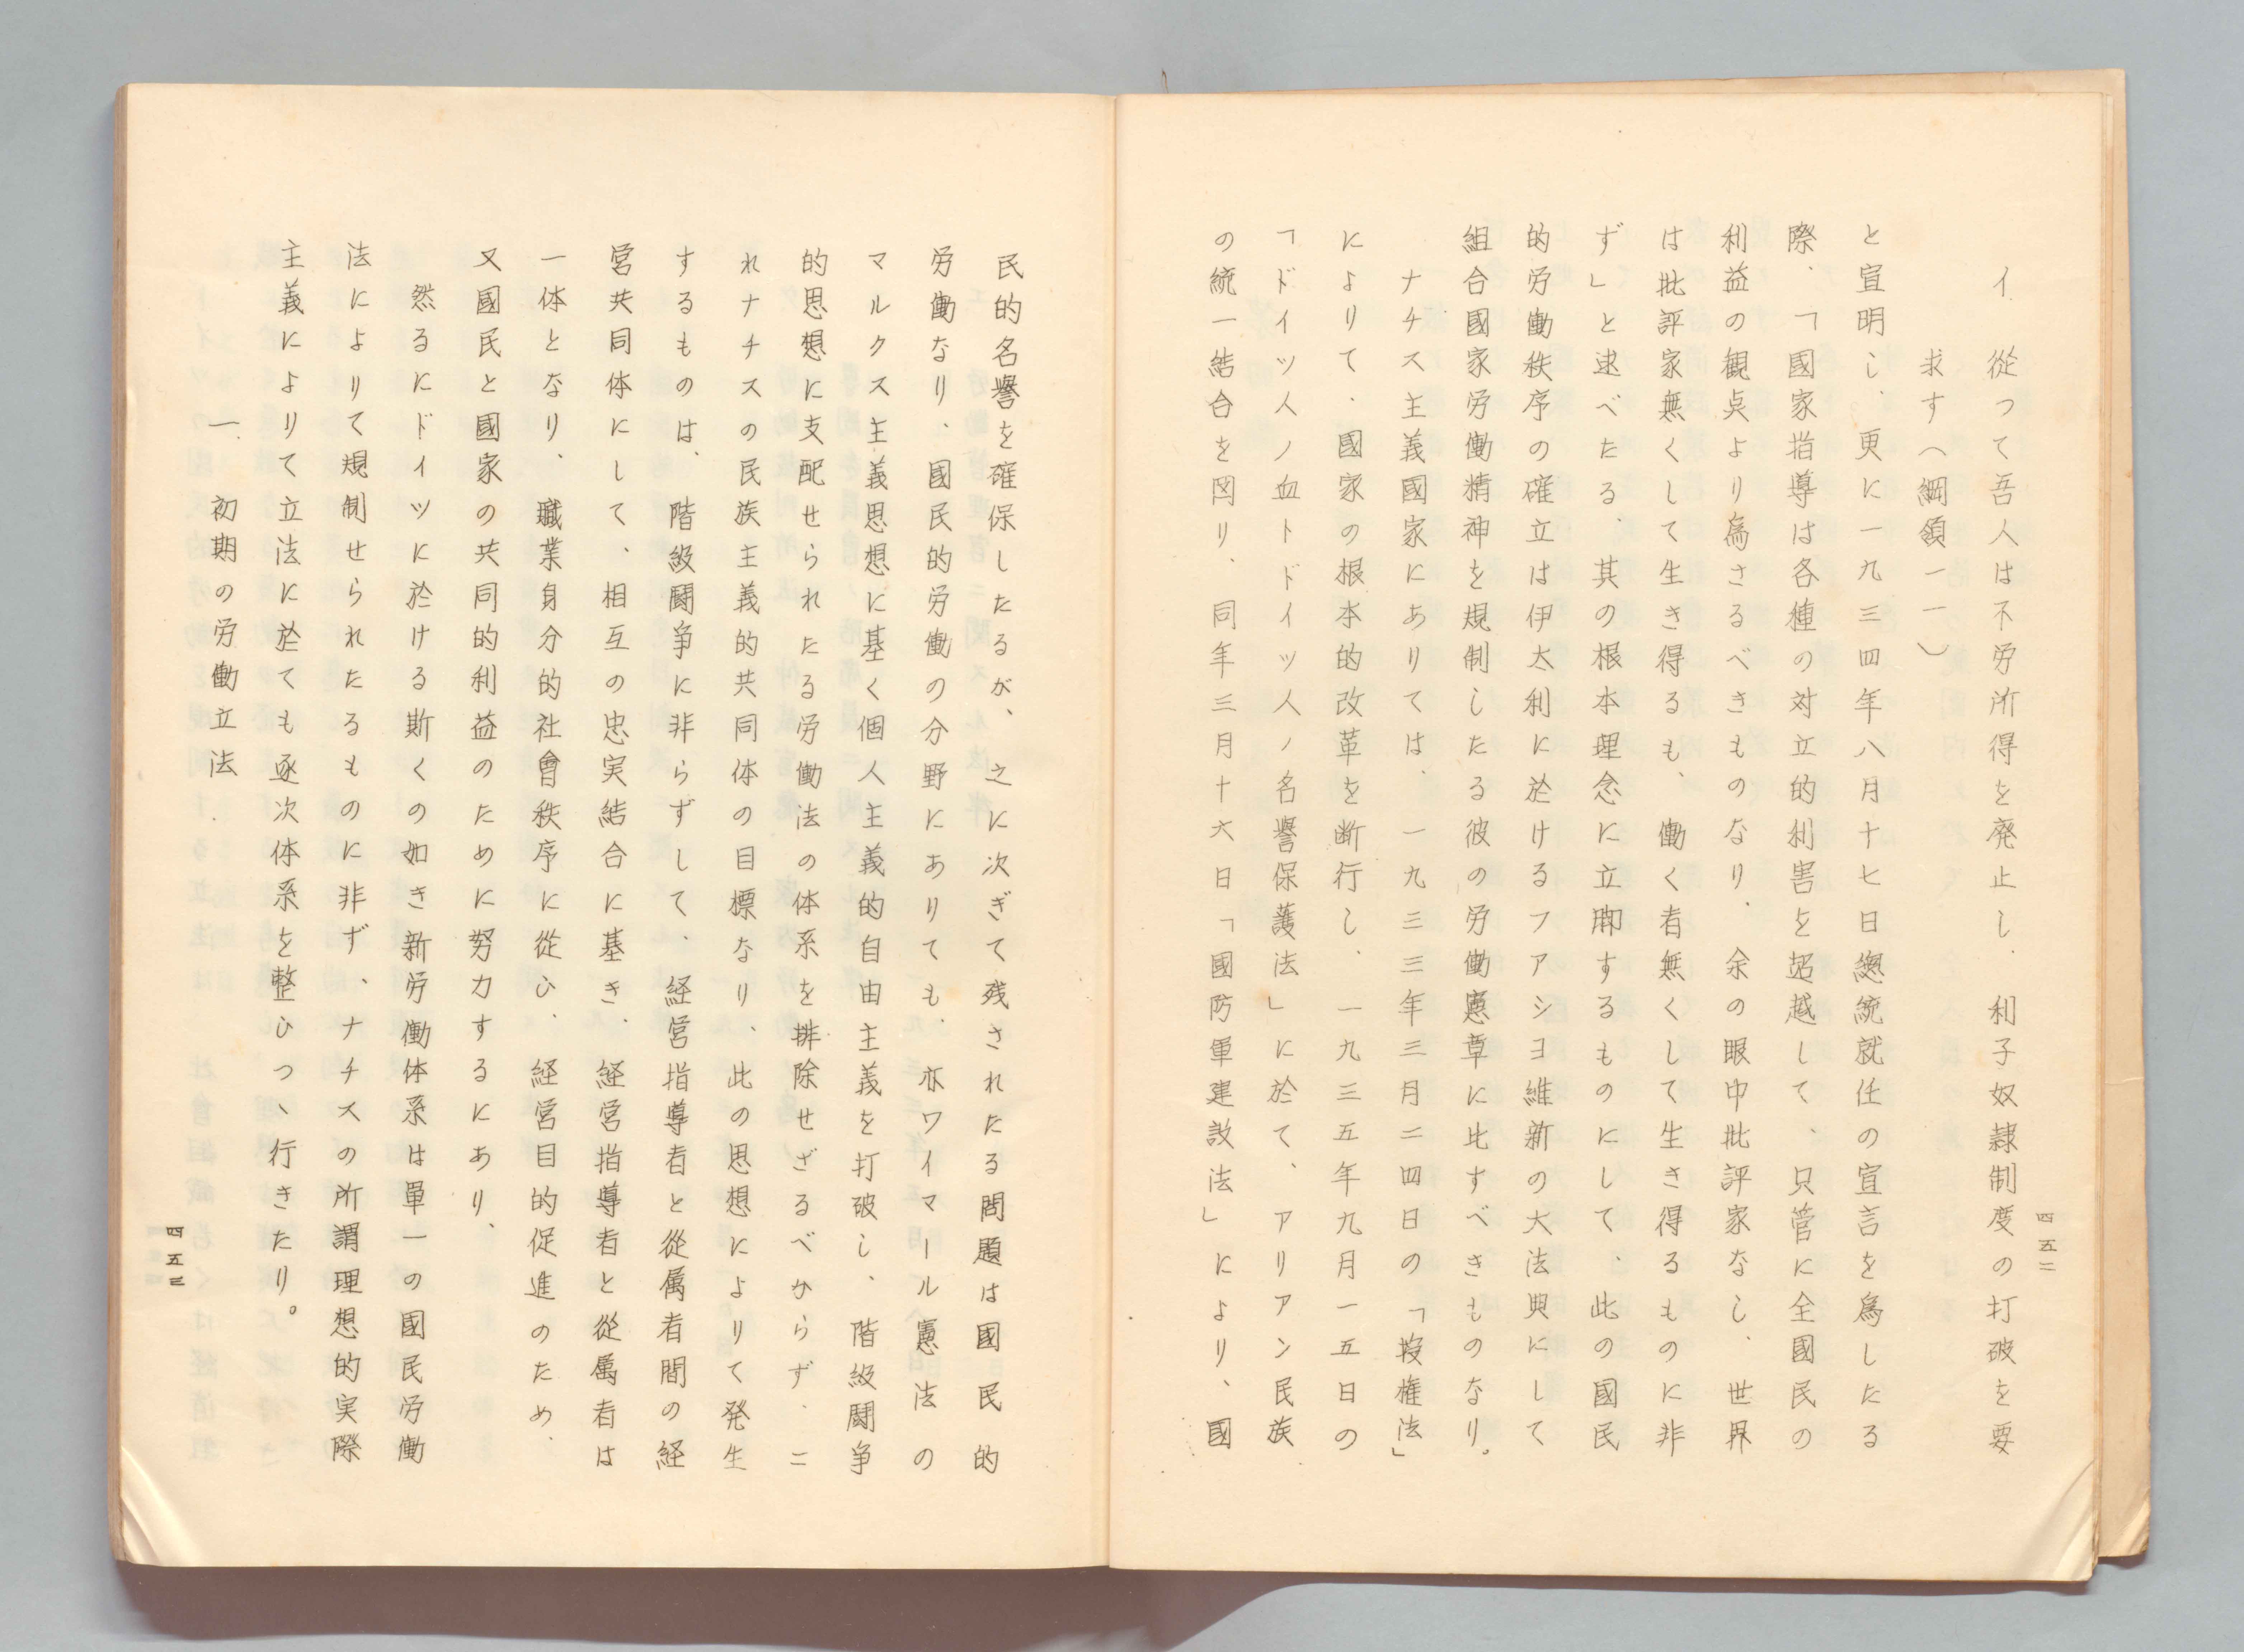 四五二
イ、從つて吾人は不労所得を廃止し、利子奴隷制度の打破を要
求す（綱領一一）
と宣明し、更に一九三四年八月十七日總統就任の宣言を爲したる
際、「國家指導は各種の対立的利害を超越して、只管に全國民の
利益の観点より爲さるべきものなり、余の眼中批評家なし、世界
は批評家無くして生き得るも、働く者無くして生き得るものに非
ず」と逑べたる、其の根本理念に立脚するものにして、此の國民
的労働秩序の確立は伊太利に於けるフアシヨ維新の大法典にして
組合國家労働精神を規制したる彼の労働憲章に比すべきものなり。
ナチス主義國家にありては、一九三三年三月二四日の「授権法」
によりて、國家の根本的改革を断行し、一九三五年九月一五日の
「ドイツ人ノ血トドイツ人ノ名譽保護法」に於て、アリアン民族
の統一結合を図り、同年三月十六日「國防軍建設法」により、國
民的名譽を確保したるが、之に次ぎて残されたる問題は國民的
労働なり、國民的労働の分野にありても、亦ワイマール憲法の
マルクス主義思想に基く個人主義的自由主義を打破し、階級闘争
的思想に支配せられたる労働法の体系を排除せざるべからず、こ
れナチスの民族主義的共同体の目標なり、此の思想によりて発生
するものは、階級闘争に非らずして、経営指導者と從属者間の経
営共同体にして、相互の忠実結合に基き、経営指導者と從属者は
一体となり、職業身分的社會秩序に從ひ、経営目的促進のため、
又國民と國家の共同的利益のために努力するにあり、
然るにドイツに於ける斯くの如き新労働体系は單一の國民労働
法によりて規制せられたるものに非ず、ナチスの所謂理想的実際
主義によりて立法に於ても逐次体系を整ひつヽ行きたり。
一、初期の労働立法
四五三